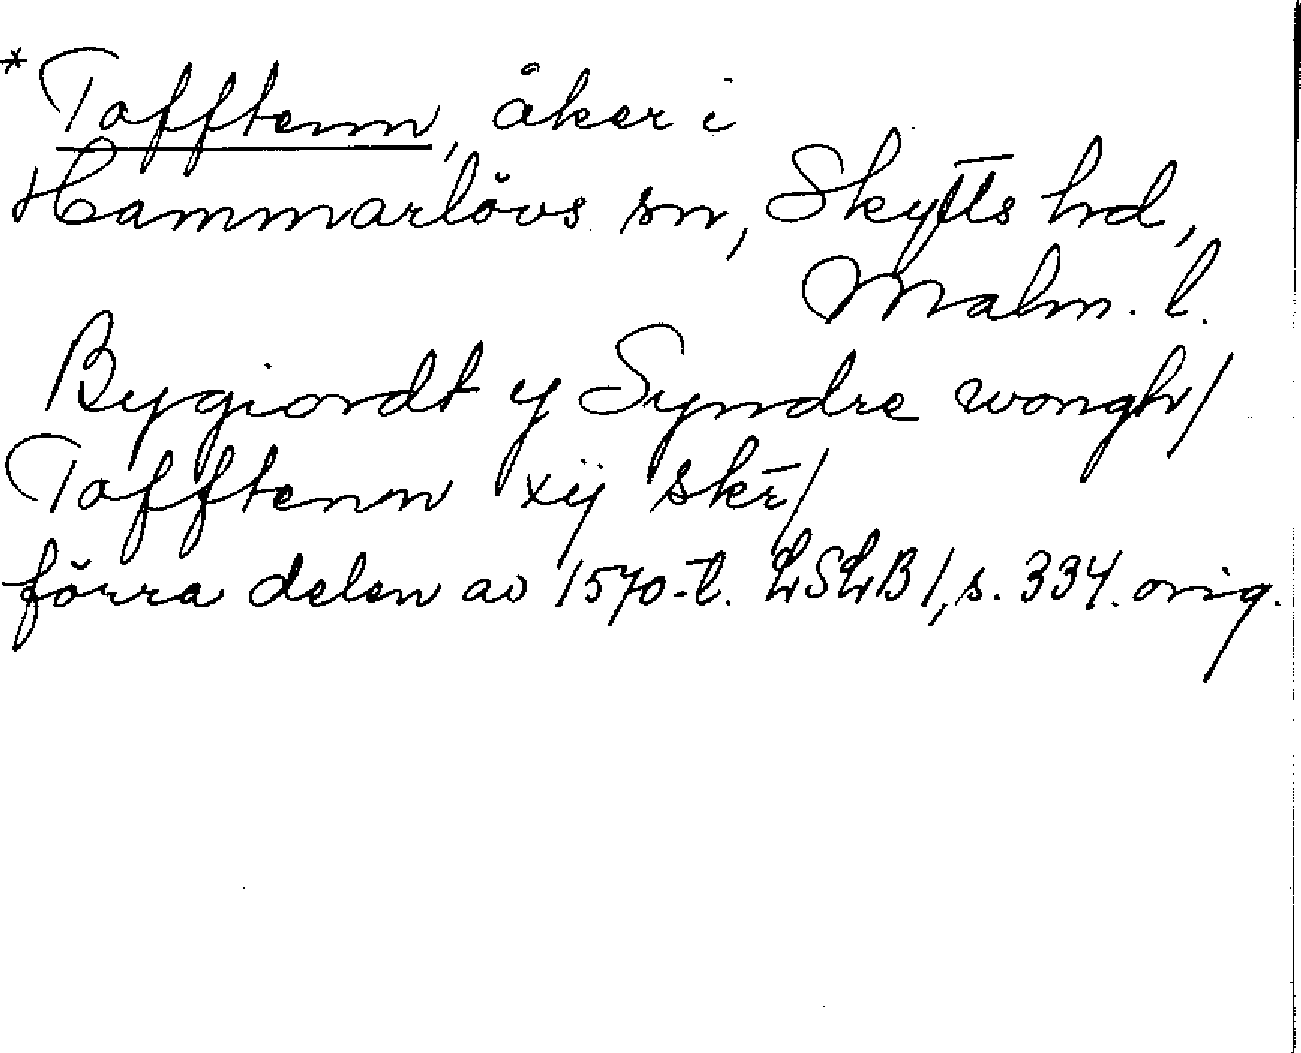 *Tofftenn, åker i
Hammarlövs sn, Skytts hd,
Malm. l.
Bygiordt y Syndre wongh/
Tofftenn xij skr̄/
förra delen av 1570-t. LSLB 1, s. 334. orig.